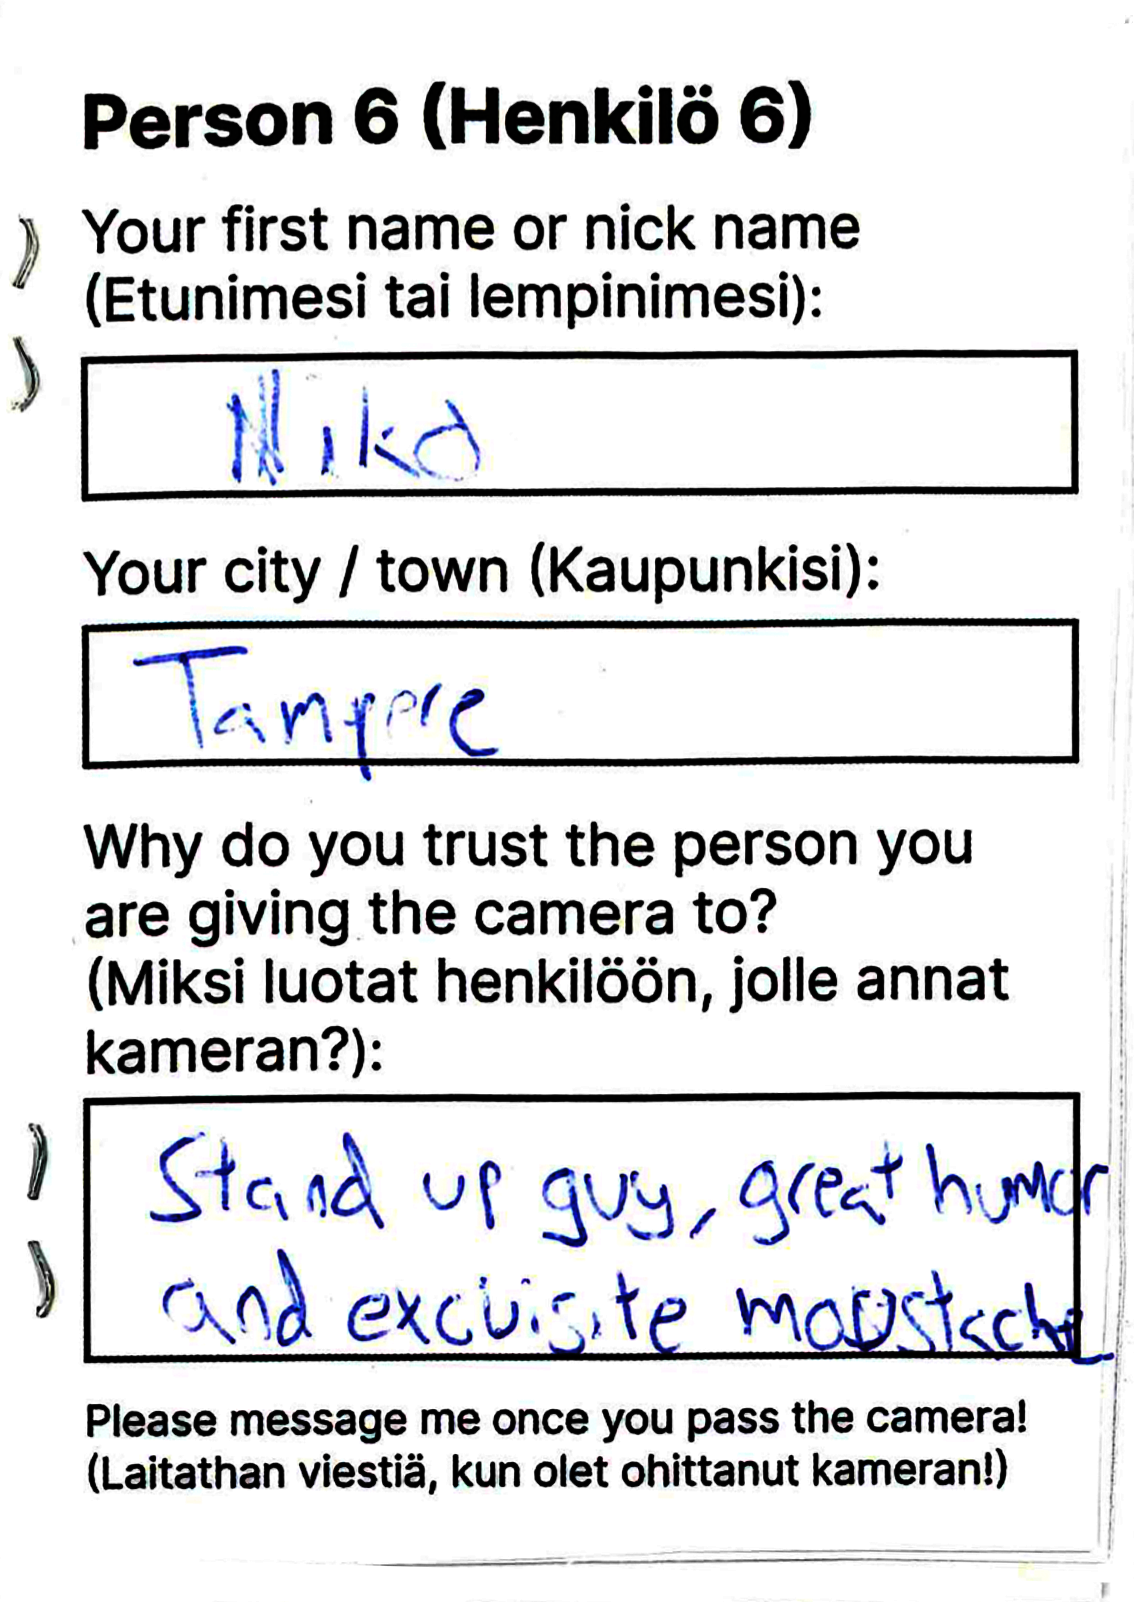 Person 6 (Henkilö 6)
Your first name or nick name
(Etunimesi tai lempinimesi):
Niko
Your city / town (Kaupunkisi):
Tampere
Why do you trust the person you
are giving the camera to?
(Miksi luotat henkilöön, jolle annat
kameran?):
Stand up guy, great humor
and excuisite moustache
Please message me once you pass the camera!
(Laitathan viestiä, kun olet ohittanut kameran!)